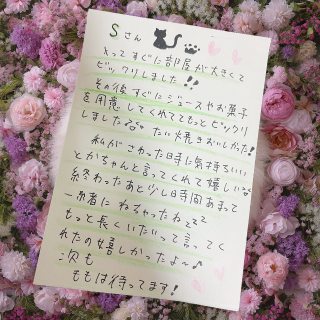 Sさん
とってすぐに部屋が大きくて
ビックリしました!!
その後すぐにジュースやお菓子
を用意してくれてもっとビックリ
しました たい焼きおいしかった!
私がさわった時に気持ちいい
とかちゃんと言ってくれて嬉しい
終わったあと少し時間あまって
一緒に ねちゃったねzzz
もっと長くいたいって言ってく
れたの嬉しかったよ〜♪
次も
ももは待ってます!